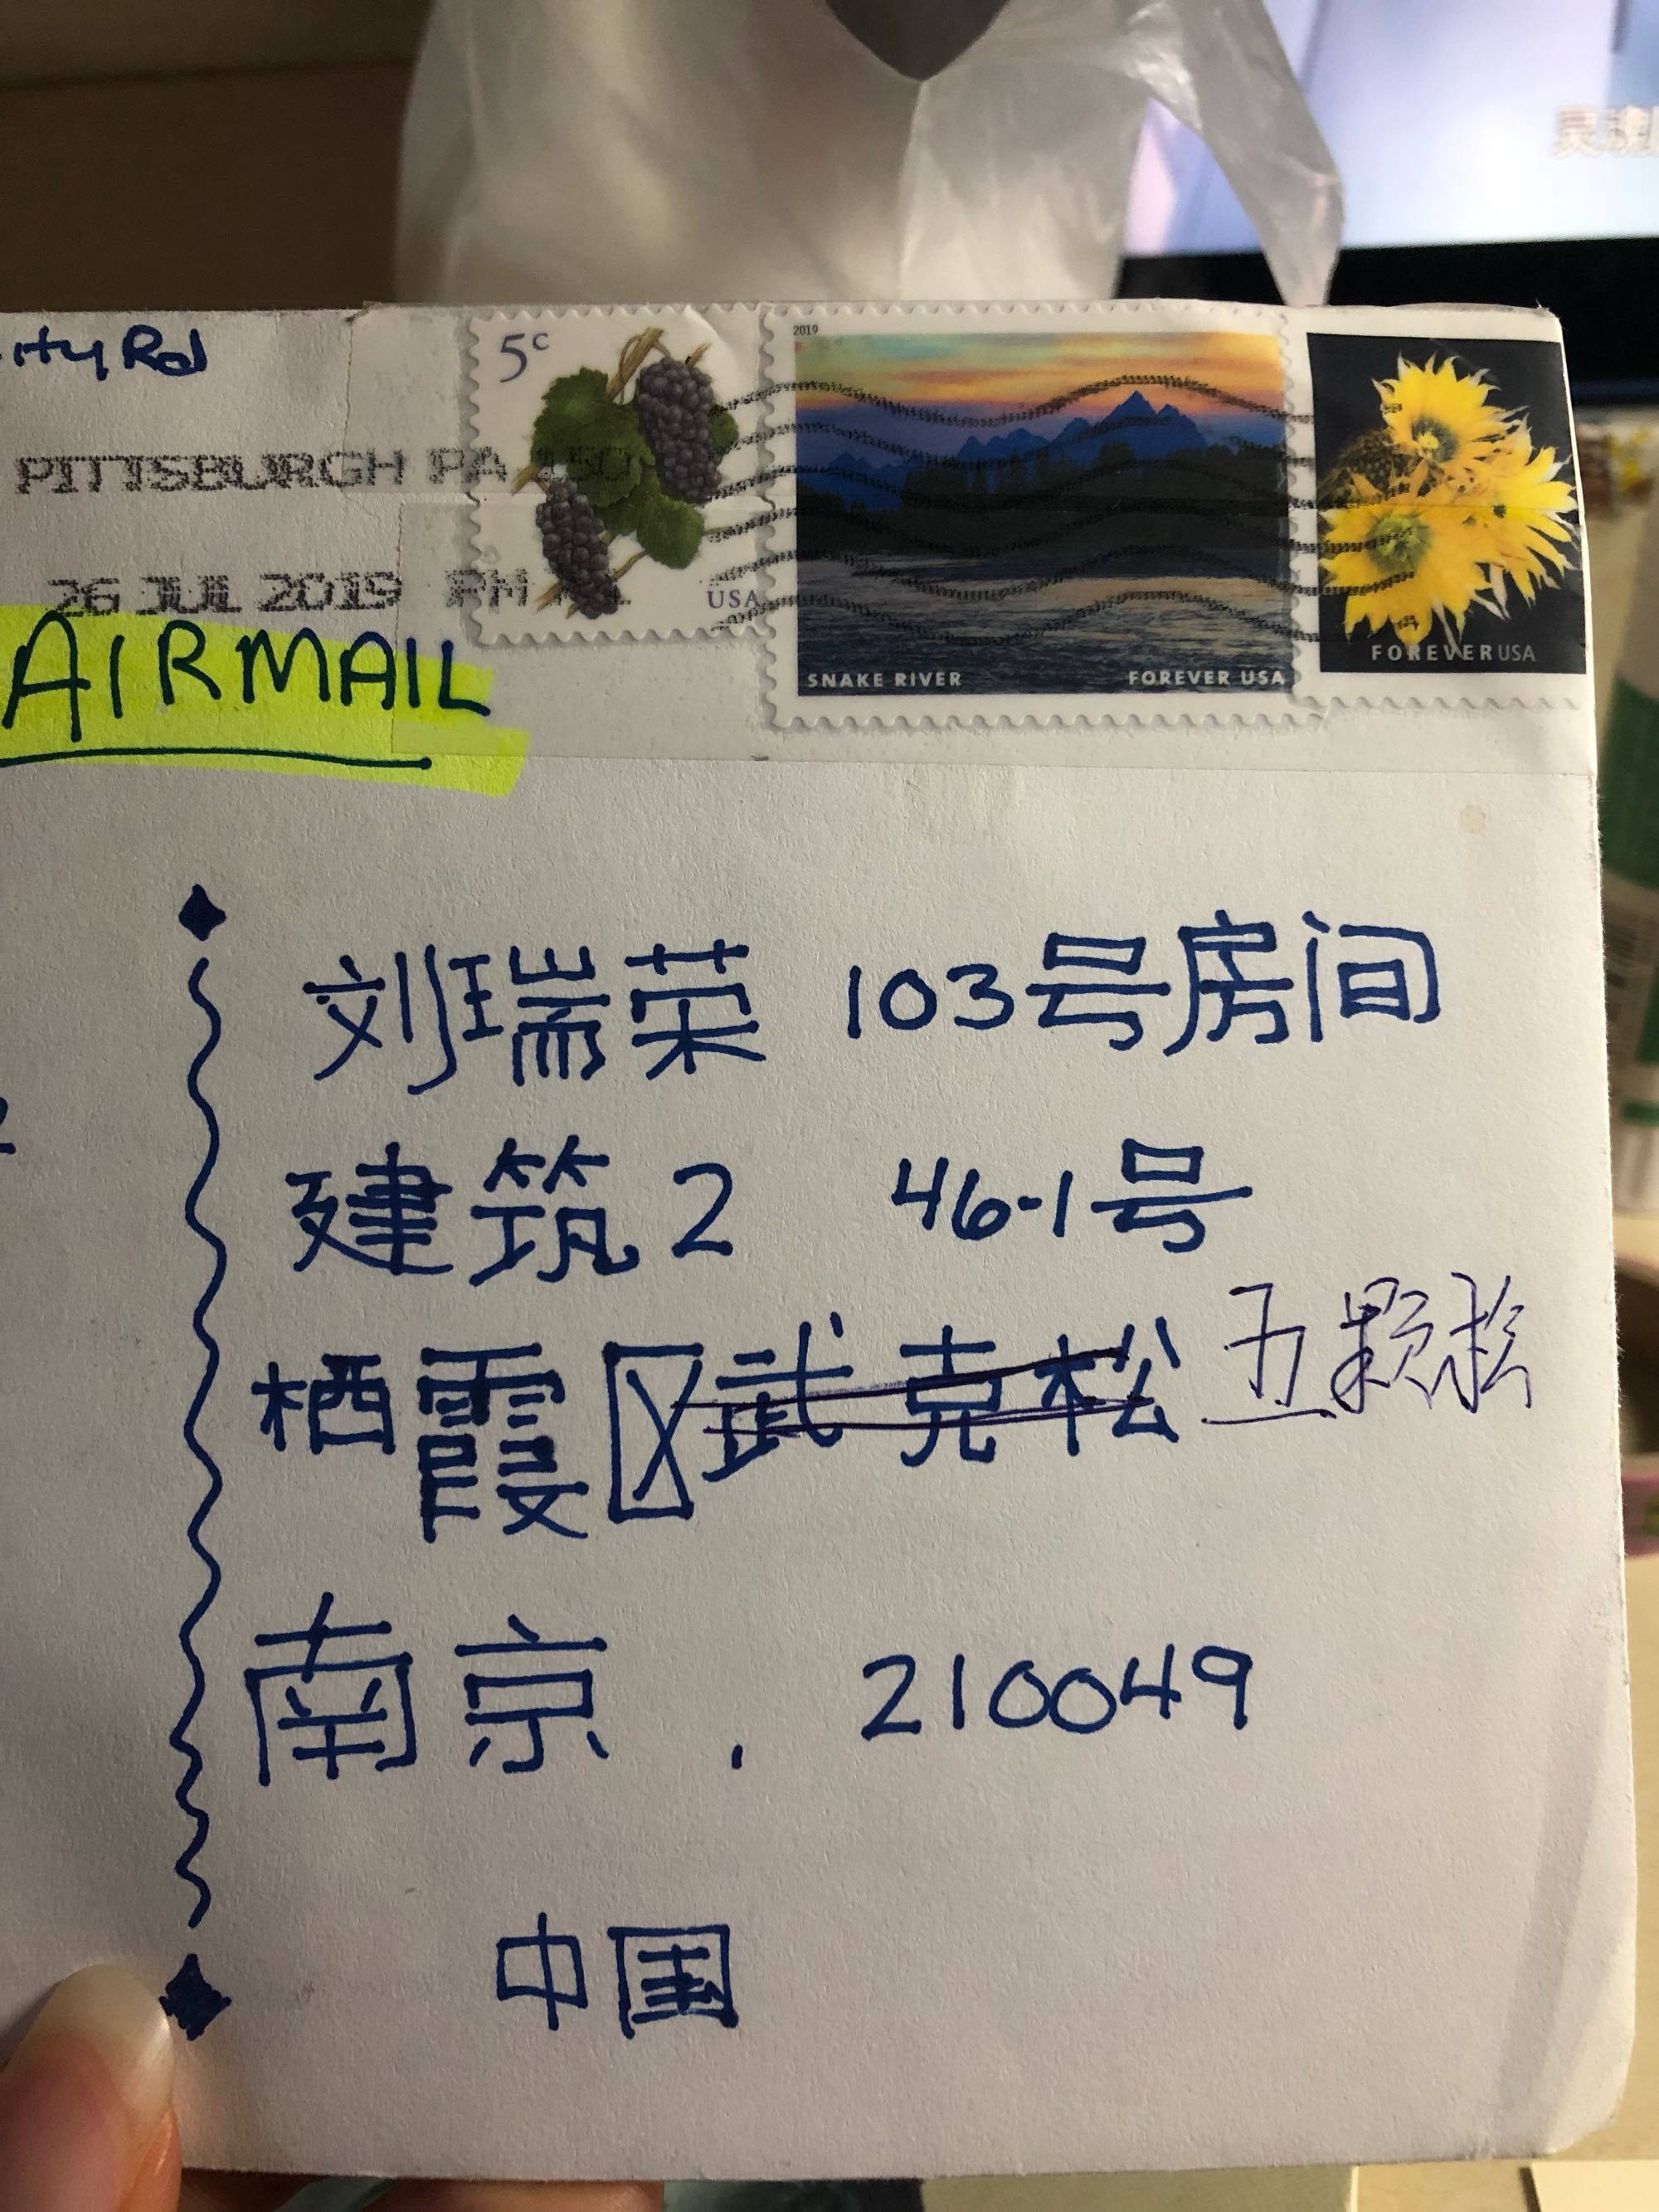 灵魂
ity Rd
5c
2019
PITTSBURGH PA 150
26 JUL 2019 PM
USA
SNAKE RIVER
FOREVER USA
FOREVER USA
AIRMAIL
刘瑞荣 103号房间
建筑2 46-1号
栖霞区武克松 五颗松
南京, 210049
中国